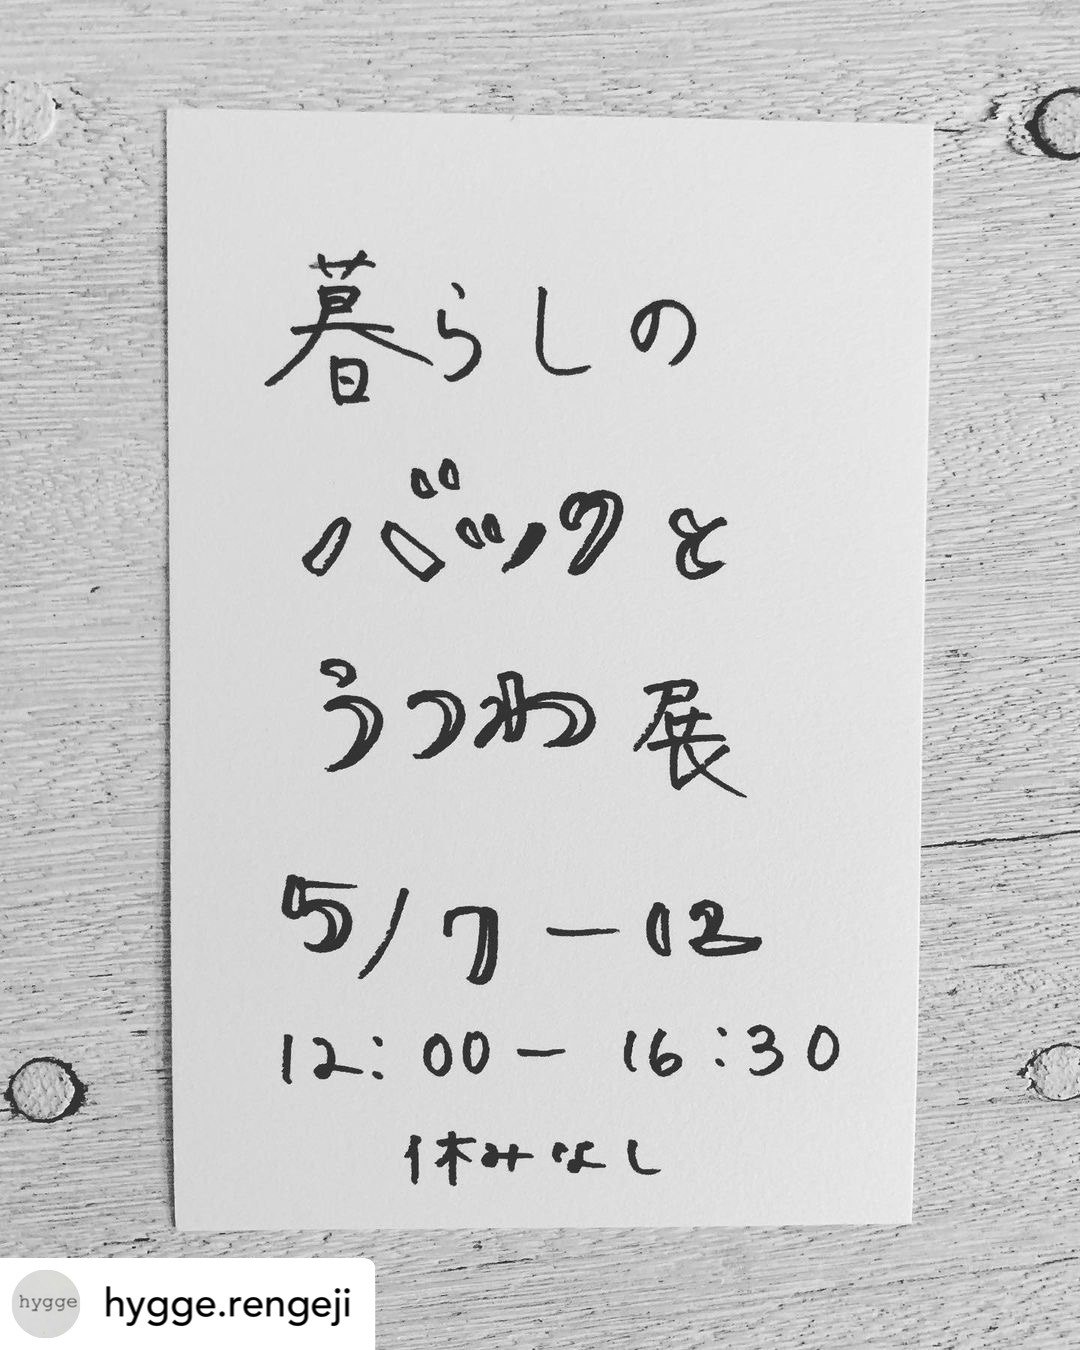 暮らしの
バックと
うつわ展
5/7-12
12:00-16:30
休みなし
hygge
hygge.rengeji